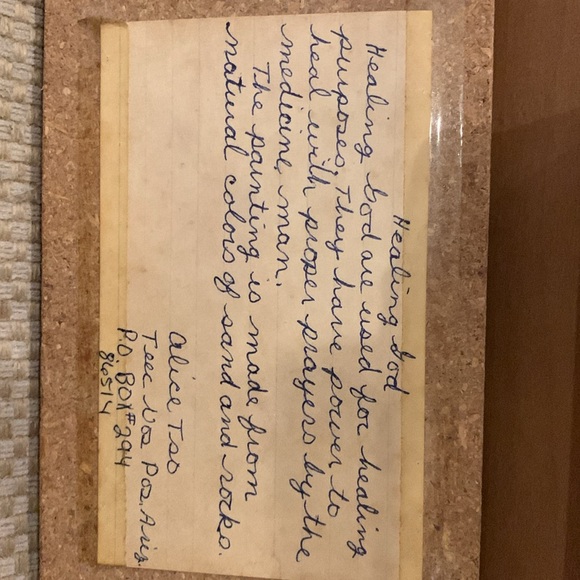 Healing God
Healing God are used for healing
purposes. They have power to
heal with proper prayers by the
medicine man.
The painting is made from
natural colors of sand and rocks.
Alice Tso
Teec Nos Pos, Ariz.
P.O. BOX #294
86514